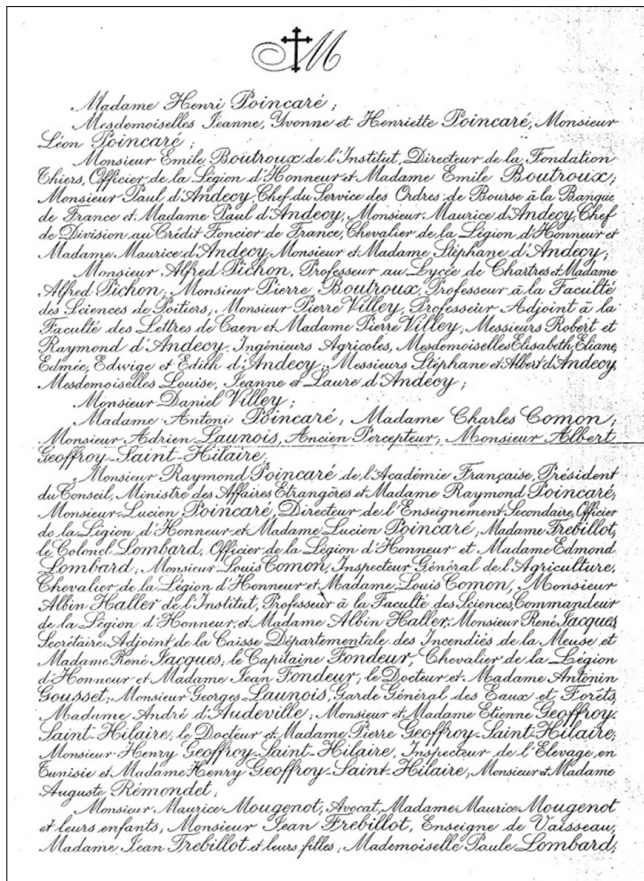 M
Madame Henri Poincaré;
Mesdemoiselles Jeanne, Yvonne et Henriette Poincaré, Monsieur
Léon Poincaré;
Monsieur Emile Boutroux de l'Institut, Directeur de la Fondation
Thiers, Officier de la Légion d'Honneur et Madame Emile Boutroux;
Monsieur Paul d'Andecy, Chef du Service des Ordres de Bourse à la Banque
de France et Madame Paul d'Andecy, Monsieur Maurice d'Andecy, Chef
de Division au Crédit Foncier de France, Chevalier de la Légion d'Honneur et
Madame Maurice d'Andecy, Monsieur et Madame Stéphane d'Andecy;
Monsieur Alfred Pichon, Professeur au Lycée de Chartres et Madame
Alfred Pichon, Monsieur Pierre Boutroux, Professeur à la Faculté
des Sciences de Poitiers, Monsieur Pierre Villey, Professeur Adjoint à la
Faculté des Lettres de Caen et Madame Pierre Villey, Messieurs Robert et
Raymond d'Andecy, Ingénieurs Agricoles, Mesdemoiselles Elisabeth, Eliane,
Edmée, Edwige et Edith d'Andecy, Messieurs Stéphane et Albert d'Andecy,
Mesdemoiselles Louise, Jeanne et Laure d'Andecy;
Monsieur Daniel Villey;
Madame Antoni Poincaré, Madame Charles Comon,
Monsieur Adrien Launois, Ancien Percepteur, Monsieur Albert
Geoffroy-Saint-Hilaire;
Monsieur Raymond Poincaré de l'Académie Française, Président
du Conseil, Ministre des Affaires Etrangères et Madame Raymond Poincaré,
Monsieur Lucien Poincaré, Directeur de l'Enseignement Secondaire, Officier
de la Légion d'Honneur et Madame Lucien Poincaré, Madame Trébillot,
le Colonel Lombard, Officier de la Légion d'Honneur et Madame Edmond
Lombard, Monsieur Louis Comon, Inspecteur Général de l'Agriculture,
Chevalier de la Légion d'Honneur et Madame Louis Comon, Monsieur
Albin Haller de l'Institut, Professeur à la Faculté des Sciences, Commandeur
de la Légion d'Honneur, et Madame Albin Haller, Monsieur René Jacques
Secrétaire-Adjoint de la Caisse Départementale des Incendiés de la Meuse et
Madame René Jacques, le Capitaine Fondeur, Chevalier de la Légion
d'Honneur et Madame Jean Fondeur, le Docteur et Madame Antonin
Gousset, Monsieur Georges Launois, Garde Général des Eaux et Forêts,
Madame André d'Audeville, Monsieur et Madame Etienne Geoffroy-
Saint-Hilaire, le Docteur et Madame Pierre Geoffroy-Saint-Hilaire,
Monsieur Henry Geoffroy-Saint-Hilaire, Inspecteur de l'Elevage, en
Tunisie et Madame Henry Geoffroy-Saint-Hilaire, Monsieur et Madame
Auguste Rémondet,
Monsieur Maurice Mougenot, Avocat, Madame Maurice Mougenot
et leurs enfants, Monsieur Jean Trebillot, Enseigne de Vaisseau,
Madame Jean Trebillot et leurs filles, Mademoiselle Paule Lombard,